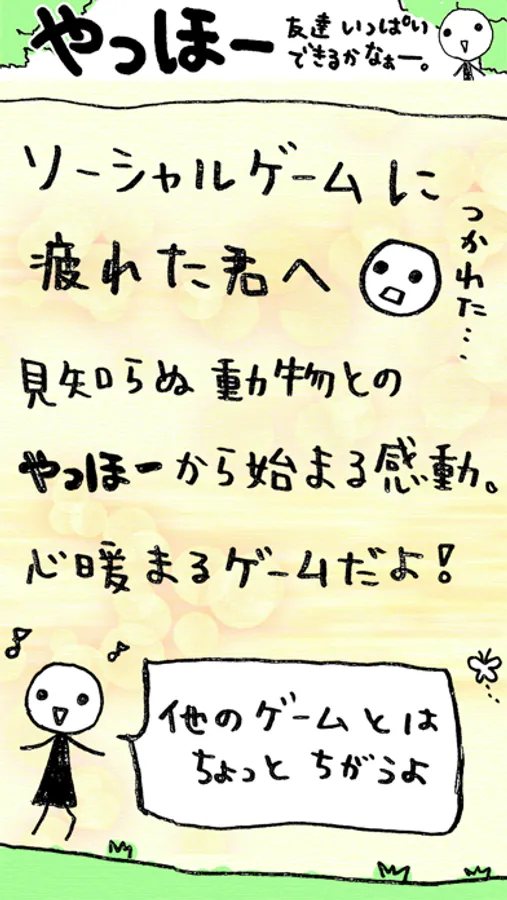 やっほー
友達 いっぱい
できるかなぁー。
ソーシャルゲームに
疲れた君へ
つかれた…
見知らぬ動物との
やっほーから始まる感動。
心暖まるゲームだよ!
他のゲームとは
ちょっと ちがうよ